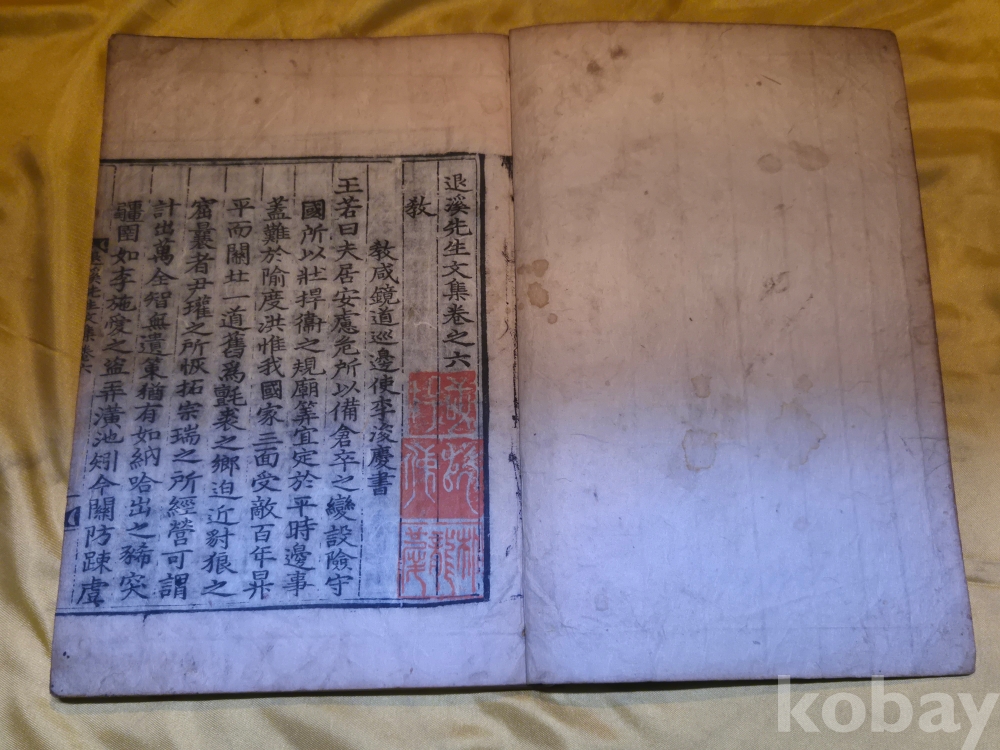 退溪先生文集卷之六
敎
敎咸鏡道巡邊使李浚慶書
王若曰夫居安慮危所以備倉卒之變設險守
國所以壯捍衛之規廟筭宜定於平時邊事
蓋難於隃度洪惟我國家三面受敵百年昇
平而關北一道舊爲氈裘之鄕迫近豺狼之
窟曩者尹瓘之所恢拓宗瑞之所經營可謂
計出萬全智無遺策猶有如納哈出之豨突
疆圉如李施愛之盜弄潢池矧今關防踈虞
kobay